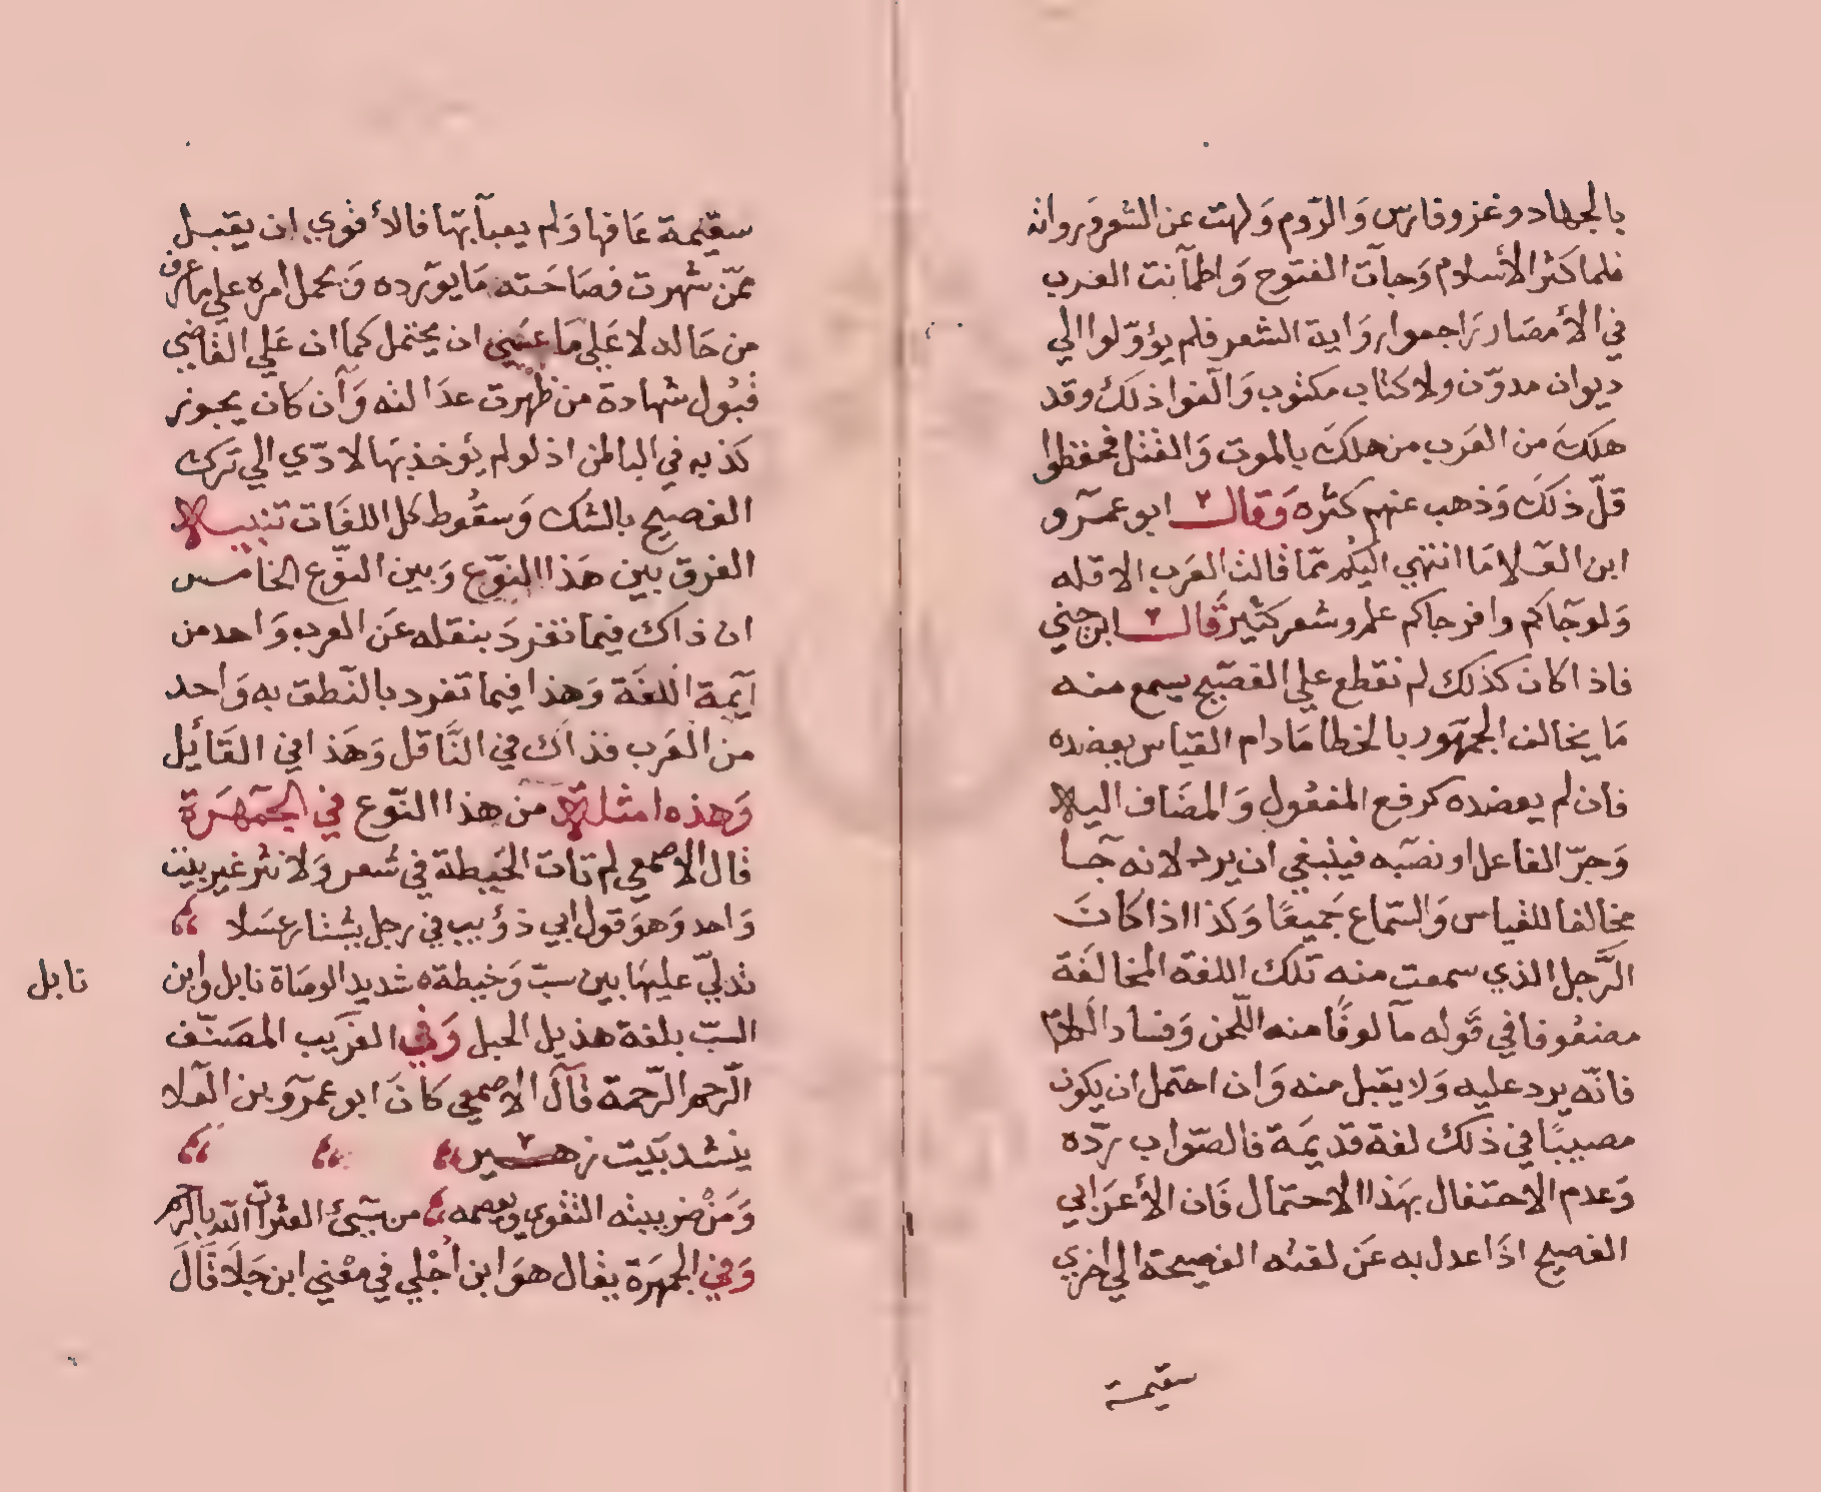 بالجهاد وغزو فارس وَالرّوم وَلهت عن الشعر وَروايته
فلما كثر الأسلام وَجاَت الفتوح وَاطمأنت العرب
في الأمصَار رَاجعوا روَاية الشعر فلم يؤوّلوا الي
ديوان مدوّن ولا كتاب مكتوب وَالّفوا ذلك وقد
هلكَ من العَرب من هلكَ بالموت وَالقتل فحفظوا
قلّ ذلكَ وَذهب عنهم كثره وَقال ابو عمرو
ابن العَلا مَا انتهي اليكم ممّا قالت العَرب الا قله
وَلو جَاكم وافر جاكم علم وشعر كثير قَال ابن جني
فاذا كان كذلك لم نقطع علي الفصيح يسمع منه
مَا يخالف الجمهور بالخطا مَا دام القياس يعضده
فان لم يعضده كرفع المفعُول وَالمضَاف اليه
وَجرّ الفاعل او نصبَه فينبغي ان يرد لانه جَا
مخالفا للقياس وَالسّماع جَميعًا وَكذا اذا كانَ
الرَّجل الذي سمعت منه تلك اللغة المخالفَة
مضعُوفا في قَوله مَالوفًا منه اللّحن وَفساد الكلام
فانّه يرد عليه وَلا يقبل منه وَان احتمل ان يكون
مصيبًا في ذلك لغة قديمَة فالصّواب ردّه
وَعدم الاحتفال بهَذا الاحتمال فَان الأعرَابي
الفصيح اذَا عدل به عَن لغته الفصيحة الي اخري
سقيمة
سقيمة عَافها وَلم يعبأ بهَا فالأقوي ان يقبل
ممّن شهرت فصَاحَته مَا يورده وَيحمل امره علي ما عرف
من حَاله لا عَلي مَا عسَي ان يحتمل كمَا ان عَلي القَاضي
قبُول شهادة من ظهرت عدَالته وَان كان يجوز
كذبه في الباطن اذ لو لم يؤخذ بهَا لادّي الي ترك
الفصيح بالشك وَسقُوط كل اللغَات تنبيه
الفرق بين هَذا النوّع وَبين النوّع الخامس
ان ذاك فيما تفرد بنقله عَن العرب وَاحد من
ايَمة اللغَة وَهذا فيما تفرد بالنّطق به وَاحد
من العَرب فذاك في النَّاقل وَهَذا في القَائل
وَهذه امثلة من هذا النوّع في الجَمهَرَة
قال الاصمعي لم تات الخَيطة في شعر وَلا نثر غير بيت
وَاحد وَهوَ قول ابي ذؤيب في رجل يشتار عسَلا
تدليّ عليهَا بين سبّ وَخيطة ه شديد الوصَاة نابل وابن
نابل
السبّ بلغة هذيل الحبل وَفي الغرَيب المصَنّف
الرّحم الرّحمة قَال الاصمعي كانَ ابو عمرو بن العَلا
ينشد بَيت زهير
وَمَنْ ضريبته التقوي ويعصمه من سَيئ العثرات الله بالرحم
وَفي الجمهرَة يقال هوَ ابن اجْلي في معْني ابن جَلَا قَالَ